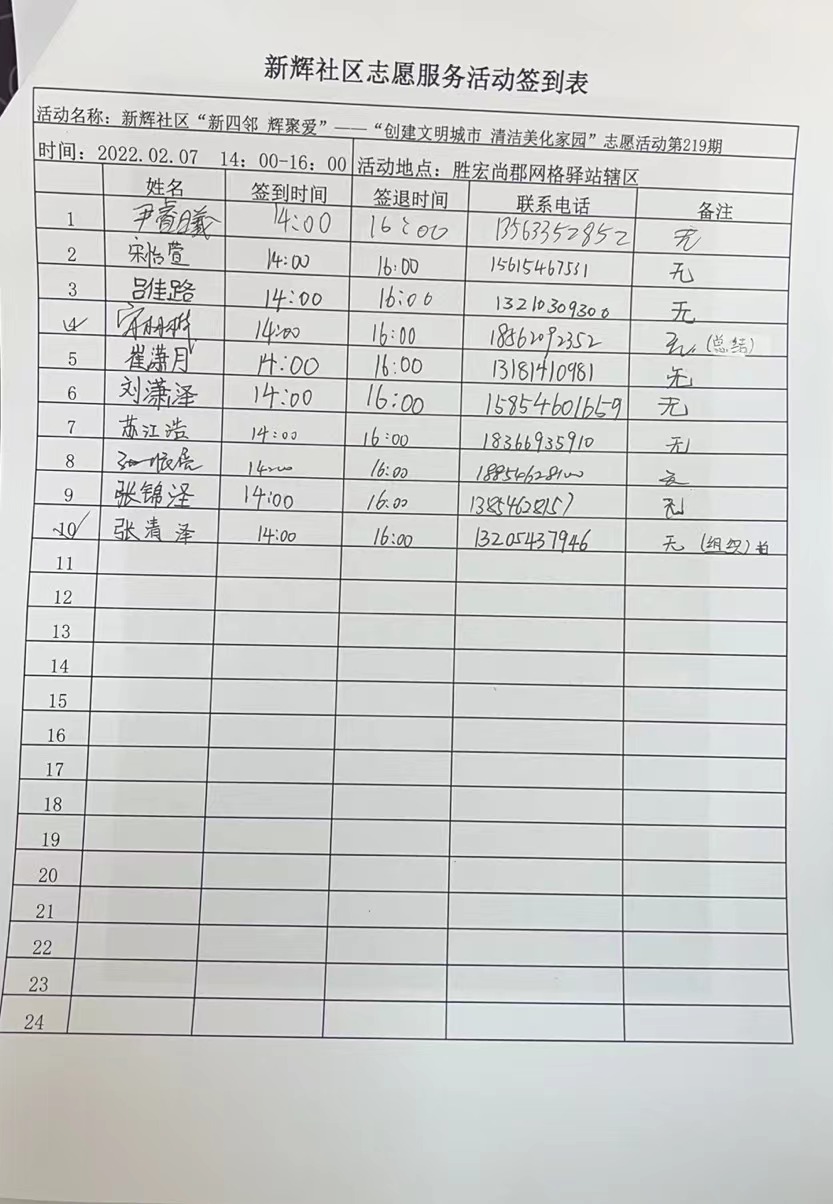 新辉社区志愿服务活动签到表
活动名称：新辉社区“新四邻 辉聚爱”——“创建文明城市 清洁美化家园”志愿活动第219期
时间：2022.02.07 14：00-16：00 活动地点：胜宏尚郡网格驿站辖区
姓名 签到时间 签退时间 联系电话 备注
1 尹睿曦 14:00 16:00 13563352852 无
2 宋怡萱 14:00 16:00 15615467531 无
3 吕佳路 14:00 16:00 13210309300 无
4 14:00 16:00 18562092352 无 (总结)
5 崔潇月 14:00 16:00 13181410981 无
6 刘潇泽 14:00 16:00 15854601659 无
7 苏江浩 14:00 16:00 18366935910 无
8 14:00 16:00 18854628100 无
9 张锦泽 14:00 16:00 13854628157 无
10 张清泽 14:00 16:00 13205437946 无 (组织)
11
12
13
14
15
16
17
18
19
20
21
22
23
24